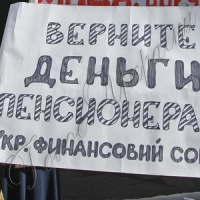 ВЕРНИТЕ
ДЕНЬГИ
ПЕНСИОНЕРА
УКР. ФИНАНСОВИЙ СО